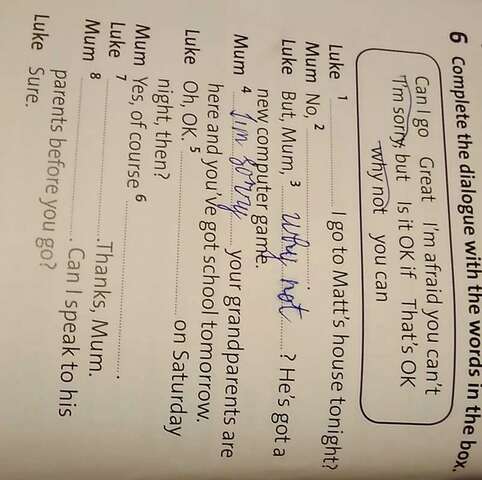 6 Complete the dialogue with the words in the box.
Can I go Great I'm afraid you can't
I'm sorry, but Is it OK if That's OK
why not you can
Luke 1 .................... I go to Matt's house tonight?
Mum No, 2 .................... .
Luke But, Mum, 3 why not ? He's got a
new computer game.
Mum 4 I'm sorry your grandparents are
here and you've got school tomorrow.
Luke Oh, OK. 5 .................... on Saturday
night, then?
Mum Yes, of course 6 .................... .
Luke 7 .................... . Thanks, Mum.
Mum 8 .................... . Can I speak to his
parents before you go?
Luke Sure.